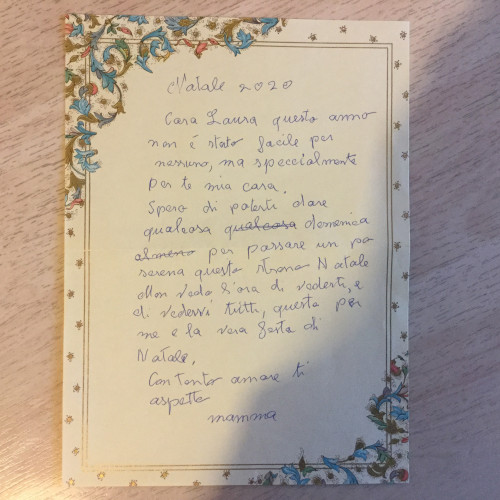 Natale 2020
Cara Laura questo anno
non é stato facile per
nessuno, ma speccialmente
per te mia cara.
Spero di poterti dare
qualcosa qualcosa domenica
almeno per passare un po
serena questo strano Natale
Non vedo l'ora di vederti, e
di vedervi tutti, questa per
me e la vera festa di
Natale.
Con tanto amore ti
aspetto
mamma